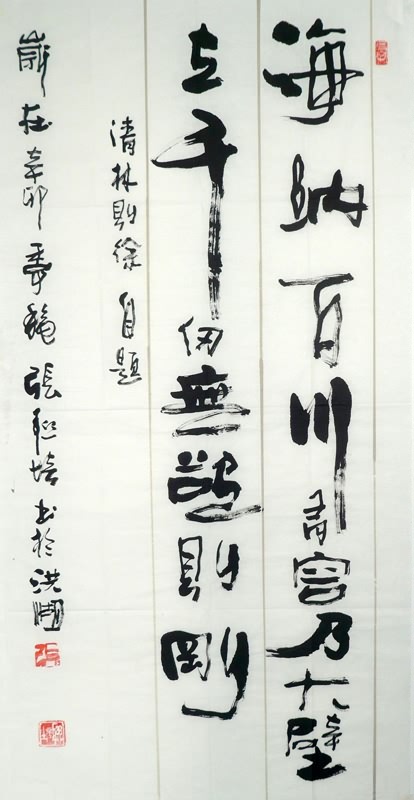 海納百川有容乃大壁
立千仞無欲則剛
清林則徐自題
歲在辛卯季龝張培書於洪湖